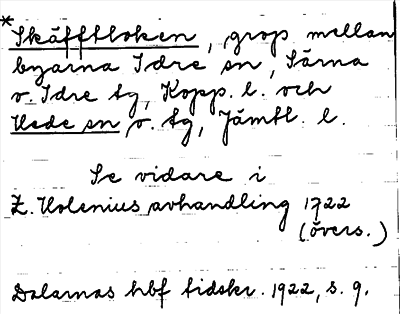 *Skäfftboken, grop mellan
byarna Idre sn, Särna
o. Idre tg, Kopp. l. och
Hede sn o. tg, Jämtl. l.
Se vidare i
Z. Holenius avhandling 1722
(övers.)
Dalarnas hbf tidskr. 1922, s. 9.